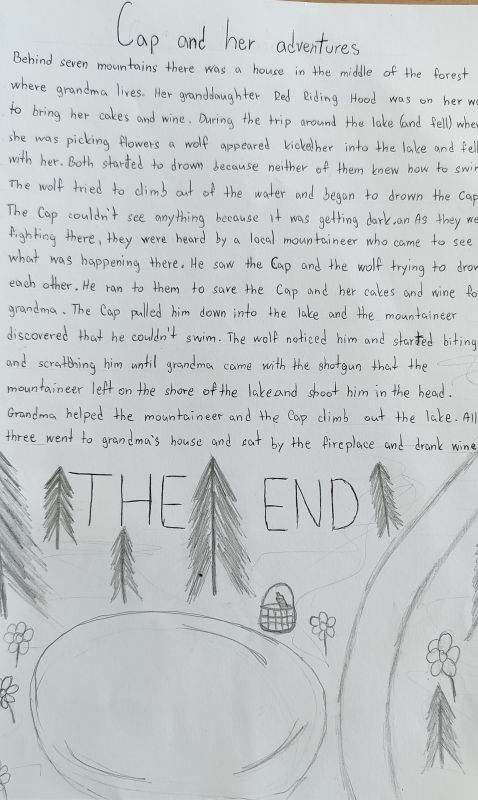 Cap and her adventures
Behind seven mountains there was a house in the middle of the forest
where grandma lives. Her granddaughter Red Riding Hood was on her
to bring her cakes and wine. During the trip around the lake (and fell)
she was picking flowers a wolf appeared kicked her into the lake and fell
with her. Both started to drown because neither of them knew how to
The wolf tried to climb out of the water and began to drown the Cap
The Cap couldn't see anything because it was getting dark.an As they
fighting there, they were heard by a local mountaineer who came to see
what was happening there. He saw the Cap and the wolf trying to
each other. He ran to them to save the Cap and her cakes and wine
grandma. The Cap pulled him down into the lake and the mountaineer
discovered that he couldn't swim. The wolf noticed him and started biting
and scratbhing him until grandma came with the shotgun that the
mountaineer left on the shore of the lake and shoot him in the head.
Grandma helped the mountaineer and the Cap climb out the lake. All
three went to grandma's house and sat by the fireplace and drank wine
THE END